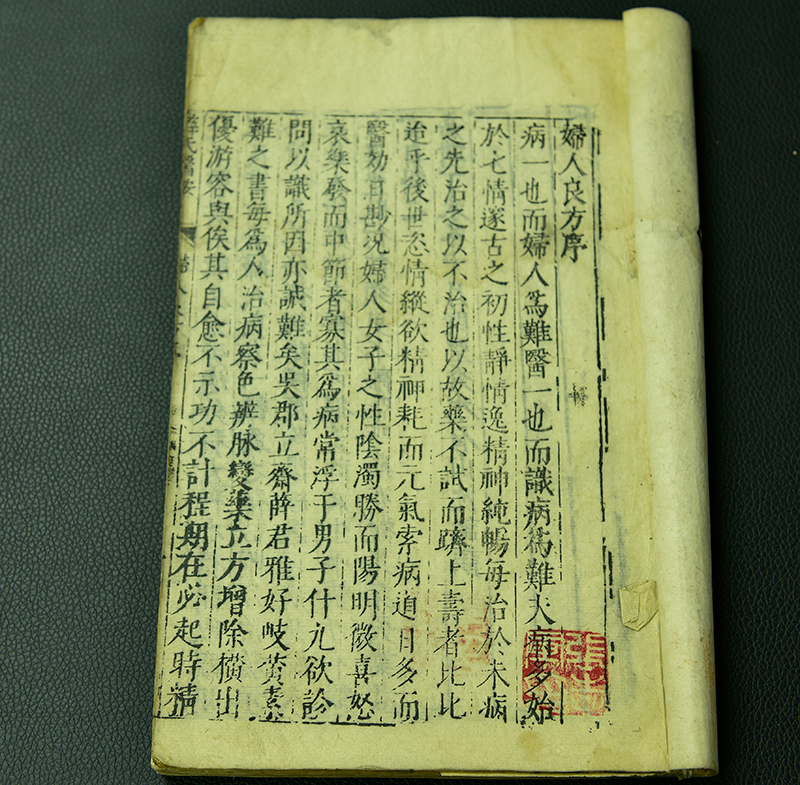 婦人良方序
病一也而婦人爲難醫一也而識病爲難夫病多始
於七情邃古之初性靜情逸精神純暢每治於未病
之先治之以不治也以故藥不試而躋上壽者比比
迨乎後世恣情縱欲精神耗而元氣索病逌日多而
醫効日尠況婦人女子之性陰濁勝而陽明微喜怒
哀樂發而中節者寡其爲病常浮于男子什九欲診
問以識所因亦誠難矣吳郡立齋薛君雅好岐黃素
難之書每爲人治病察色辨脉變藥立方增除橫出
優游容與俟其自愈不示功不計程期在必起時精
薛氏醫按
婦人良方序